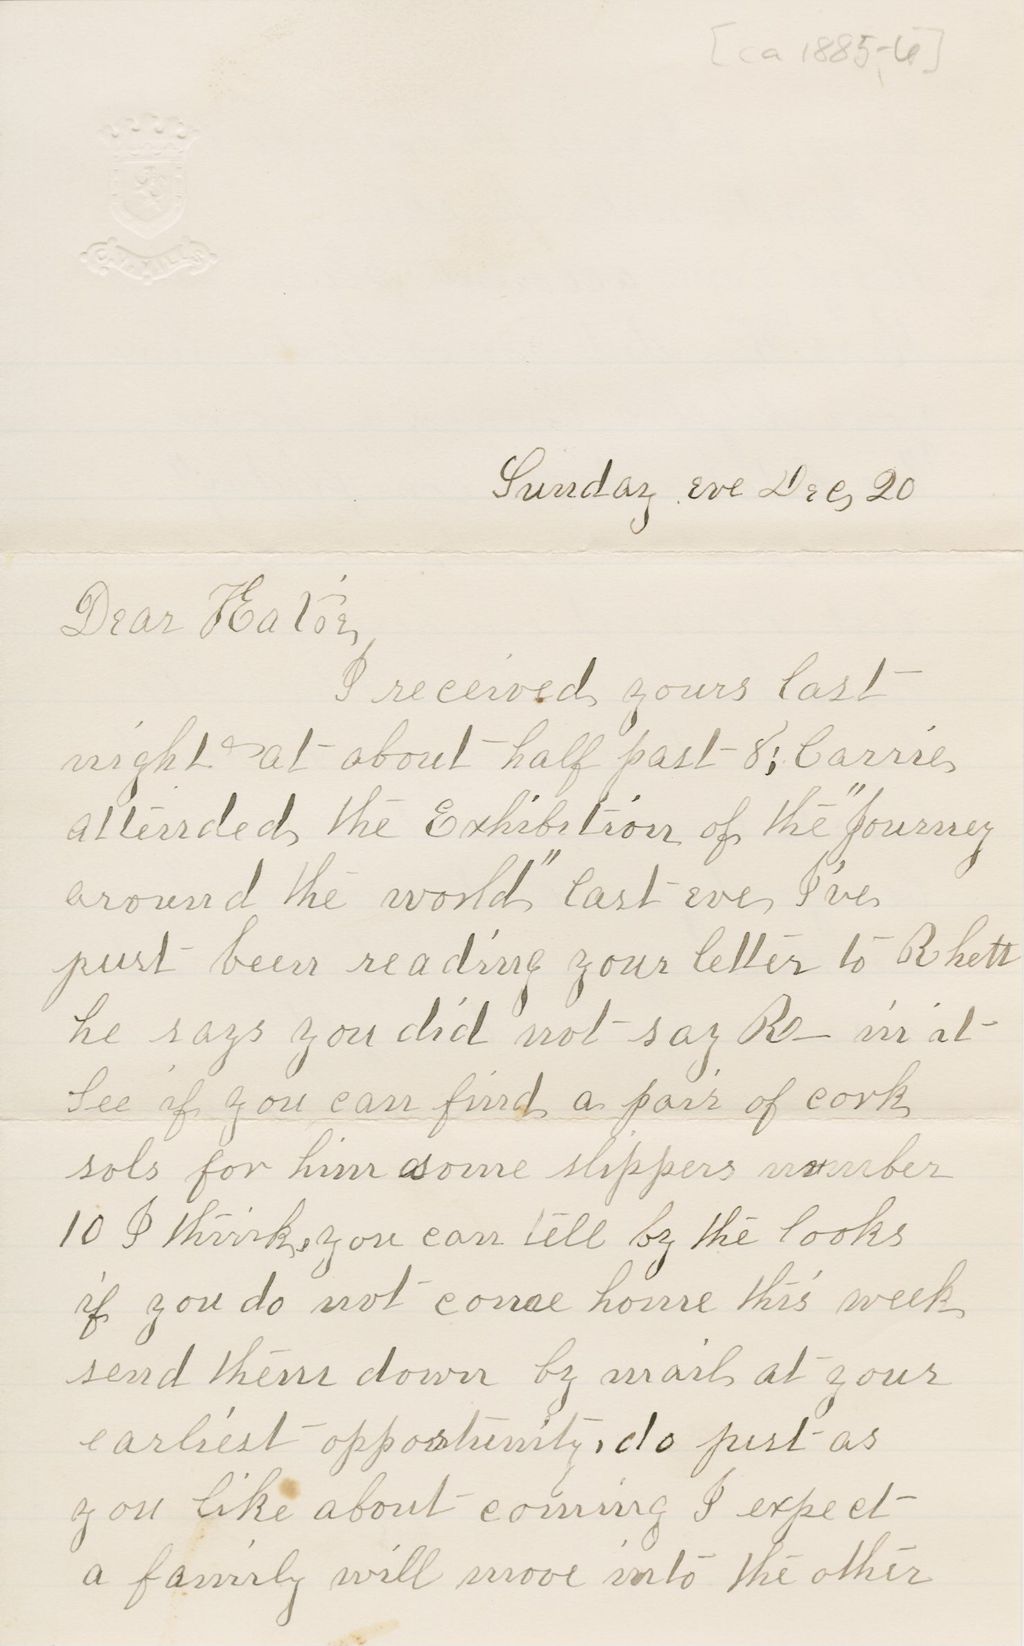 [ca 1885-6]
C. V. MILLS
Sunday eve Dec, 20
Dear Katie,
I received yours last
night at about half past 8; Carrie
attended the Exhibition of the "Journey
around the world" last eve, I've
just been reading your letter to Rhett
he says you did not say R— in it
See if you can find a pair of cork
sols for him some slippers number
10 I think, you can tell by the looks
if you do not come home this week
send them down by mail at your
earliest opportunity, do just as
you like about coming I expect
a family will move into the other